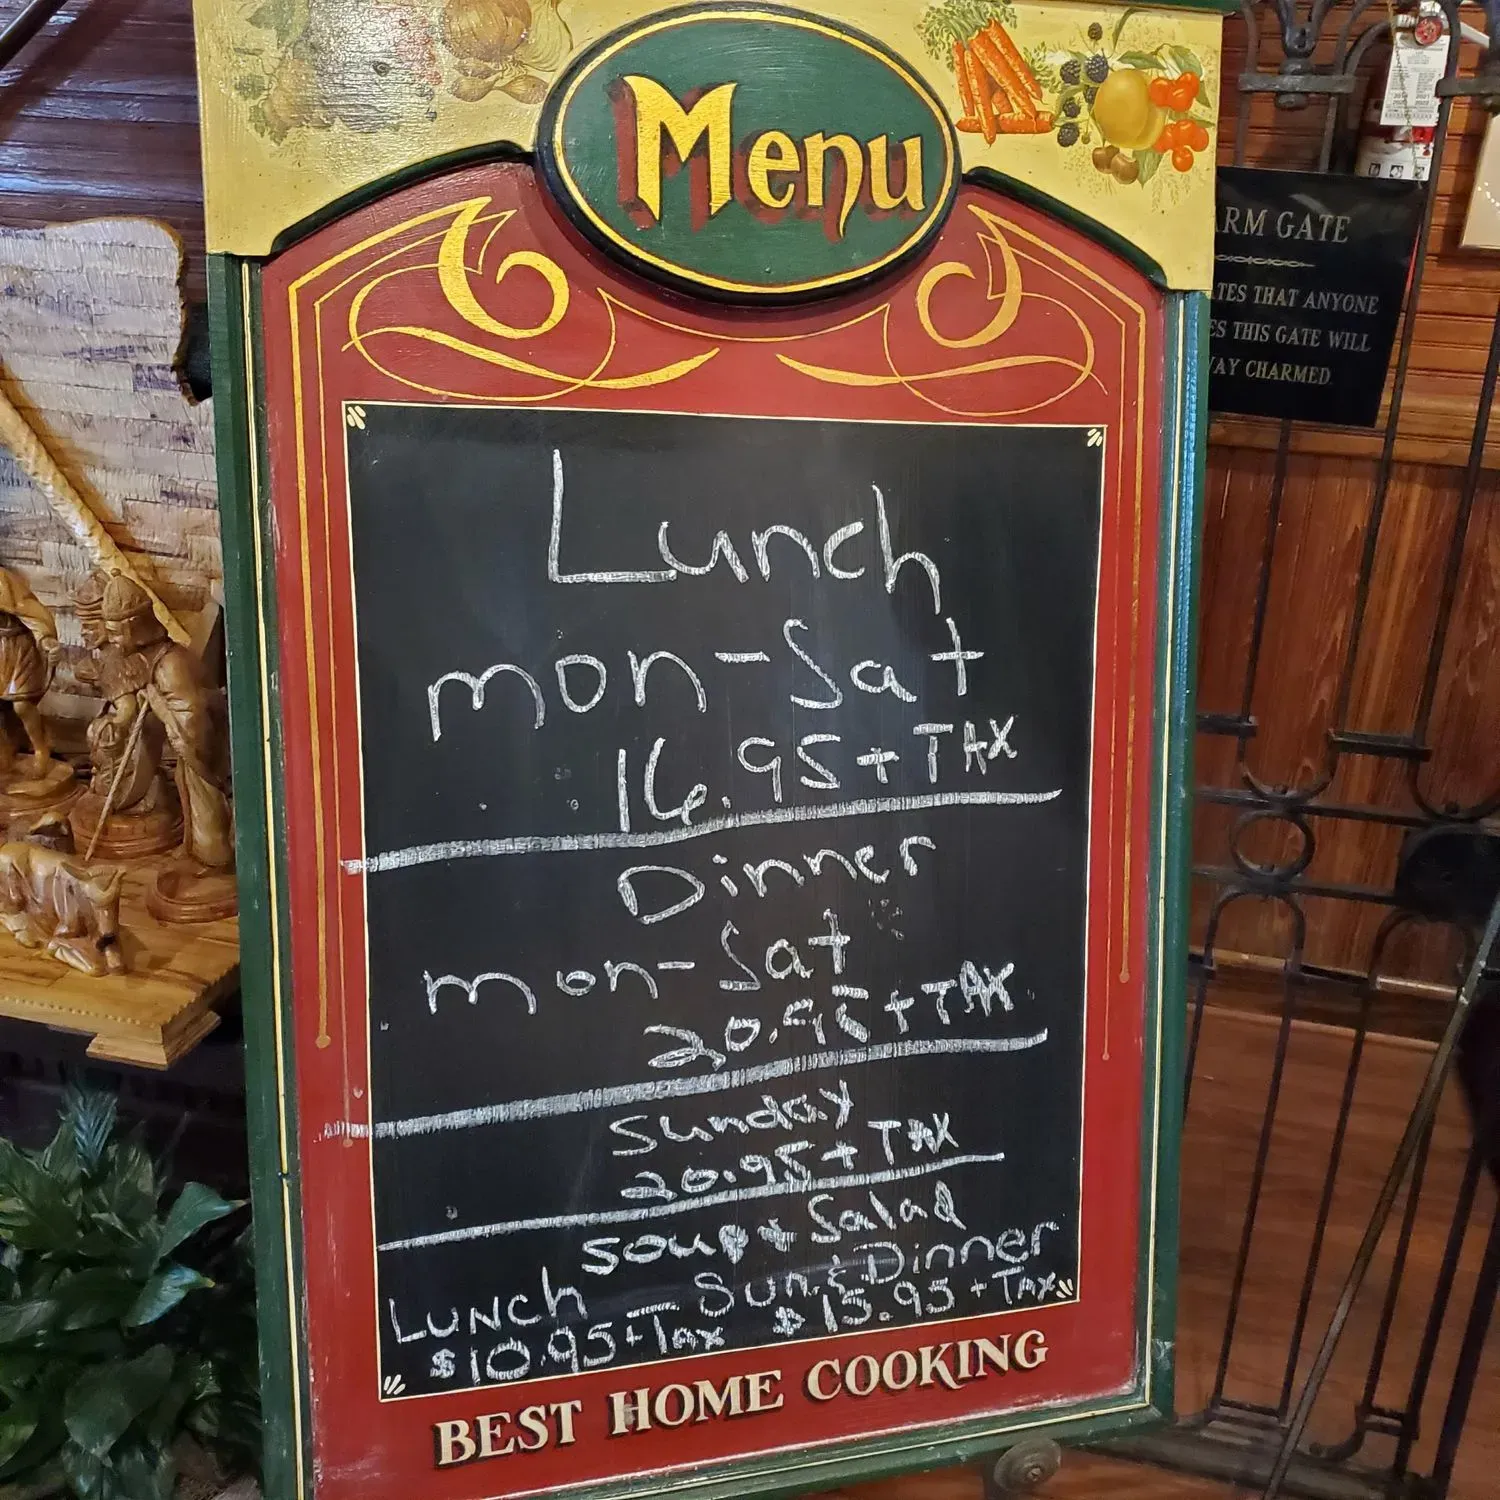 Menu
Lunch
mon-Sat
16.95 + TAX
Dinner
mon-Sat
20.95 + TAX
Sunday
20.95 + TAX
Soup + Salad
LUNCH — Sun. & Dinner
$10.95 + Tax $15.95 + TAX
BEST HOME COOKING
GATE
THAT ANYONE
THIS GATE WILL
CHARMED